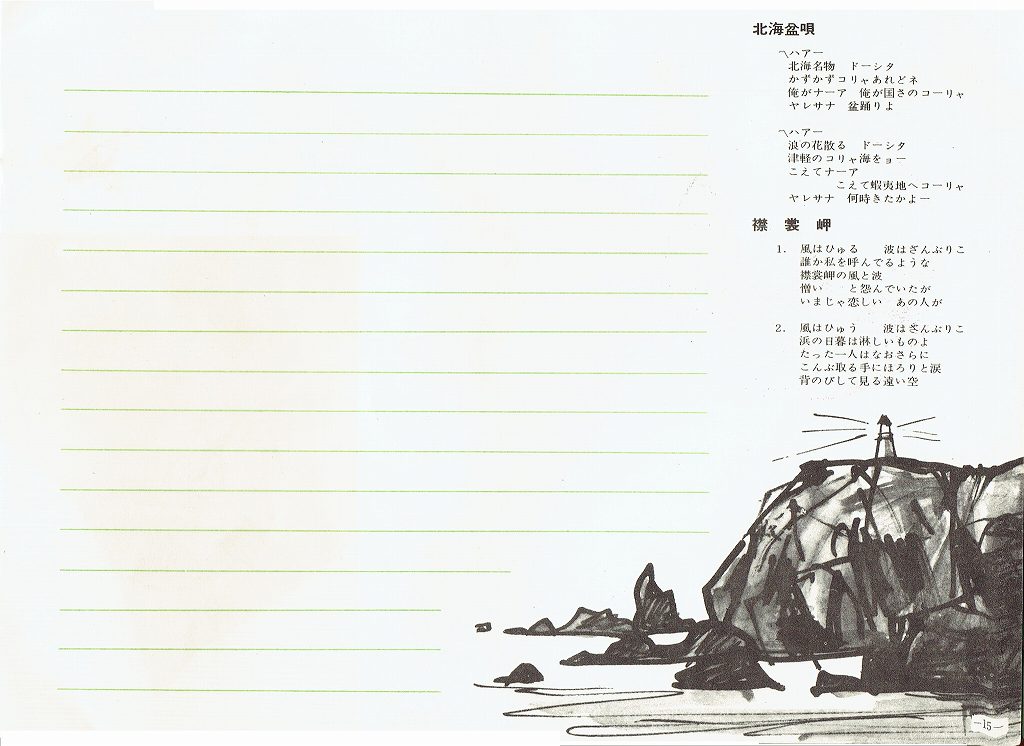 北海盆唄
〽ハアー
北海名物　ドーシタ
かずかずコリャあれどネ
俺がナーア　俺が国さのコーリャ
ヤレサナ　盆踊りよ
〽ハアー
浪の花散る　ドーシタ
津軽のコリャ海をョー
こえてナーア
こえて蝦夷地へコーリャ
ヤレサナ　何時きたかよー
襟裳岬
1.　風はひゅる　波はざんぶりこ
誰か私を呼んでるような
襟裳岬の風と波
憎い　と怨んでいたが
いまじゃ恋しい　あの人が
2.　風はひゅう　波はざんぶりこ
浜の日暮は淋しいものよ
たった一人はなおさらに
こんぶ取る手にほろりと涙
背のびして見る遠い空
—15—